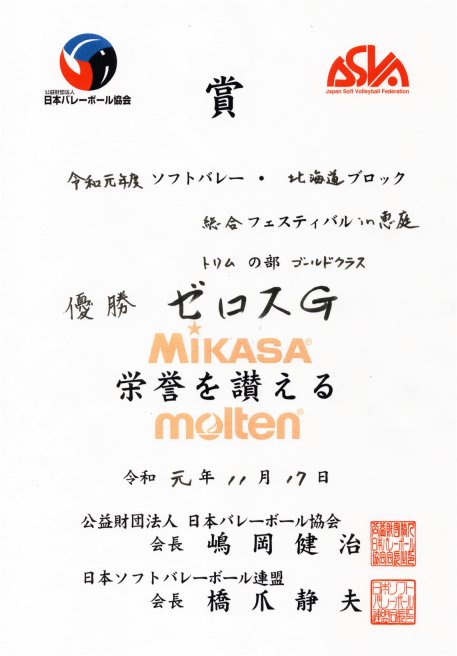 公益財団法人
日本バレーボール協会
JSVA
Japan Soft Volleyball Federation
賞
令和元年度 ソフトバレー・北海道ブロック
総合フェスティバル in 恵庭
トリム の部 ゴールドクラス
優勝 ゼロスG
MIKASA®
栄誉を讃える
molten®
令和 元年 11月 17日
公益財団法人 日本バレーボール協会
会長 嶋岡健治
日本ソフトバレーボール連盟
会長 橋爪静夫